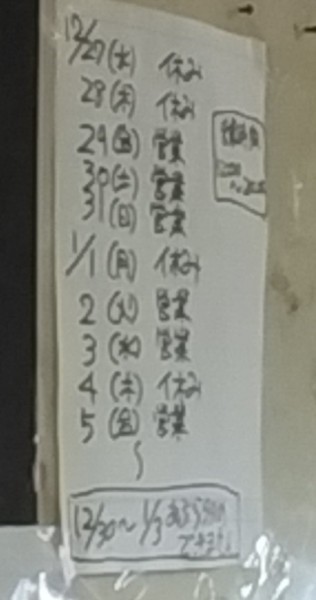 12/27(水) 休み
28(木) 休み
29(金) 営業
30(土) 営業
31(日) 営業
1/1(月) 休み
2(火) 営業
3(水) 営業
4(木) 休み
5(金) 営業
〜
営業時間
12/30〜1/3